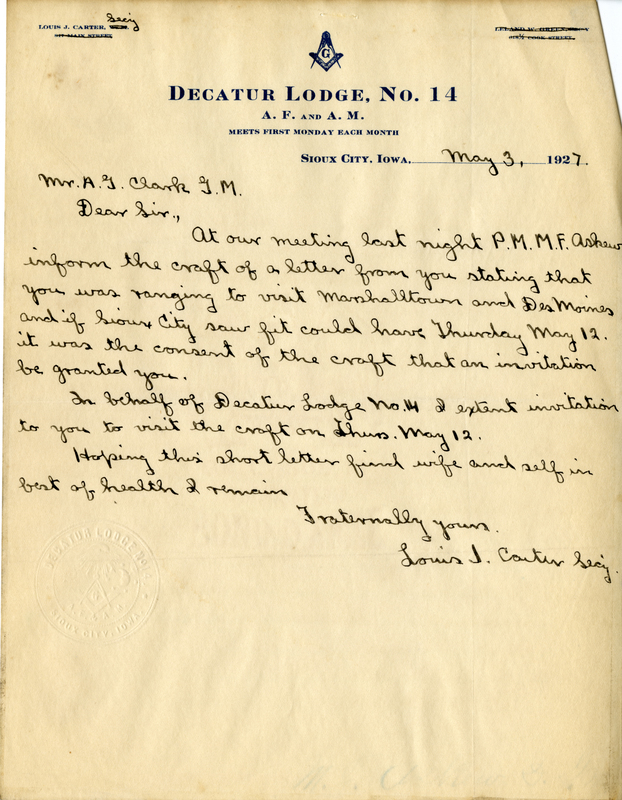 Secy
LOUIS J. CARTER,
917 MAIN STREET
LELAND W. GREEN,
COOK STREET,
G
DECATUR LODGE, NO. 14
A. F. AND A. M.
MEETS FIRST MONDAY EACH MONTH
SIOUX CITY, IOWA, May 3, 1927.
Mr. A. G. Clark G. M.
Dear Sir.,
At our meeting last night P. M. M. F. Askew
inform the craft of a letter from you stating that
you was ranging to visit Marshalltown and Des Moines
and if Sioux City saw fit could have Thurday May 12.
it was the consent of the craft that an invitation
be granted you.
In behalf of Decatur Lodge No. 14 I extent invitation
to you to visit the craft on Thurs. May 12.
Hoping this short letter find wife and self in
best of health I remain
Fraternally yours.
Louis J. Carter Secy.
DECATUR LODGE NO.
SIOUX CITY, IOWA.